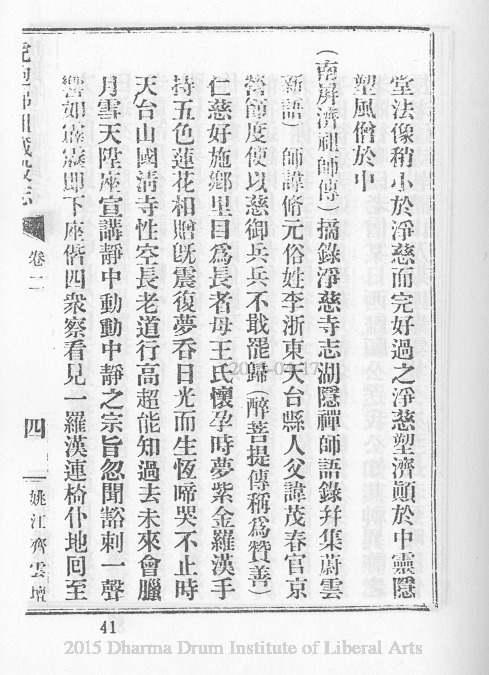 堂法像稍小於淨慈而完好過之淨慈塑濟顚於中靈隱
塑風僧於中
(南屏濟祖師傳)摘錄淨慈寺志湖隱禪師語錄幷集蔚雲
新語)師諱脩元俗姓李浙東天台縣人父諱茂春官京
營節度使以慈御兵兵不戢罷歸(醉菩提傳稱爲贊善)
仁慈好施鄉里目爲長者母王氏懷孕時夢紫金羅漢手
持五色蓮花相贈旣震復夢吞日光而生恆啼哭不止時
天台山國淸寺性空長老道行高超能知過去未來會臘
月雪天陞座宣講靜中動動中靜之宗旨忽聞豁剌一聲
響如霹靂卽下座偕四衆察看見一羅漢連椅仆地囘至
卷二
四
姚江齊雲壇
41
2015 Dharma Drum Institute of Liberal Arts